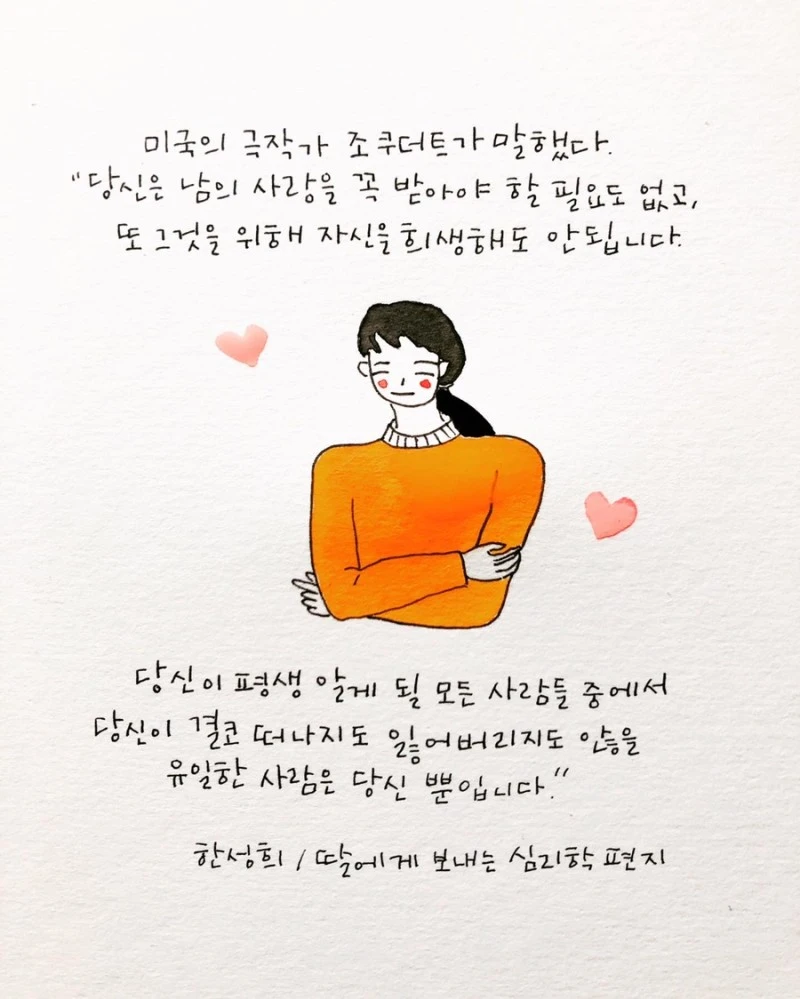 미국의 극작가 조 쿠더트가 말했다.
"당신은 남의 사랑을 꼭 받아야 할 필요도 없고,
또 그것을 위해 자신을 희생해도 안됩니다.
당신이 평생 알게 될 모든 사람들 중에서
당신이 결코 떠나지도 잃어버리지도 않을
유일한 사람은 당신 뿐입니다."
한성희 / 딸에게 보내는 심리학 편지